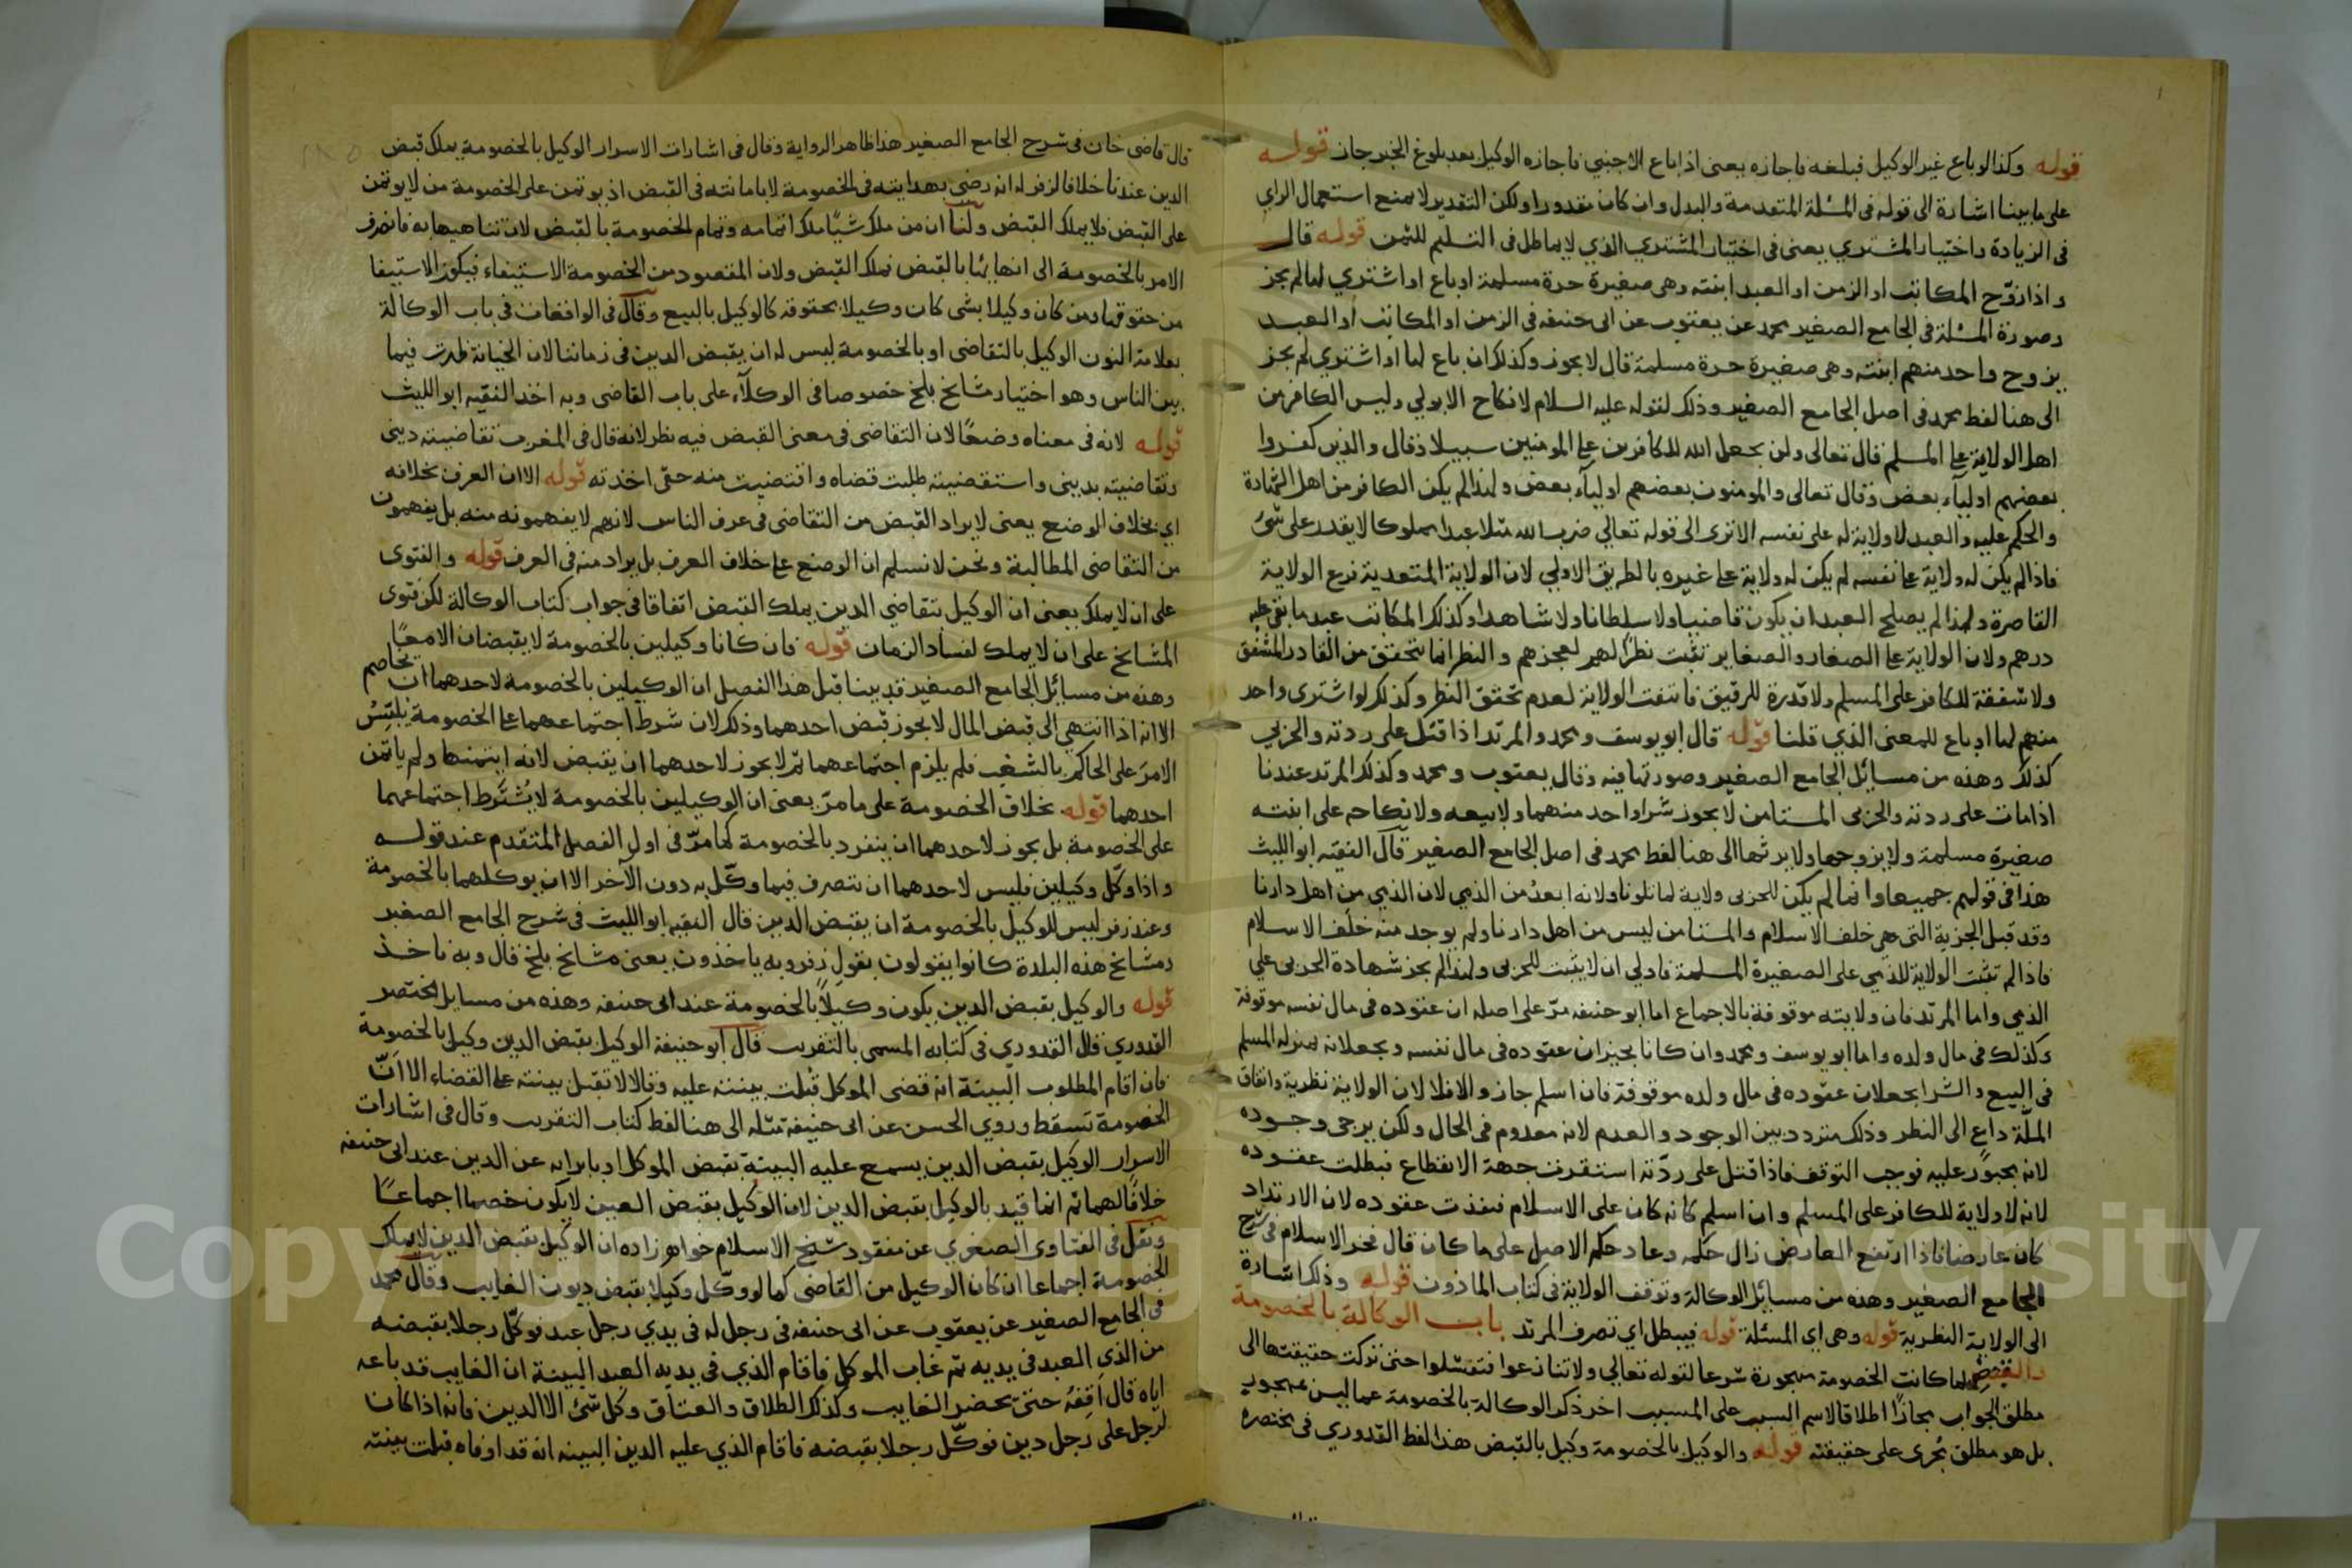 قوله وكذا لو باع غير الوكيل فبلغه فاجازه يعنى اذا باع الاجنبي فاجازه الوكيل بعد بلوغ الخبر جاز قوله
على ما بينا اشارة الى قوله فى المسئلة المتقدمة والبدل وان كان مقدورا ولكن التقدير لا يمنع استعمال الراي
فى الزيادة واختيار المشتري يعنى فى اختيار المشتري الذي لا يماطل فى التسليم للثمن قوله قال
واذا زوّج المكاتب او الزمن او العبد ابنته وهى صغيرة حرة مسلمة او باع او اشتري لها لم يجز
وصورة المسئلة فى الجامع الصغير محمد عن يعقوب عن ابى حنيفه فى الزمن او المكاتب أو العبد
يزوج واحد منهم ابنته وهى صغيرة حرة مسلمة قال لا يجوز وكذلك ان باع لها او اشتري لم يجز
الى هنا لفظ محمد فى اصل الجامع الصغير وذلك لقوله عليه السلام لا نكاح الا بولي وليس الكافر من
اهل الولاية على المسلم قال تعالى ولن يجعل الله للكافرين على المومنين سبيلا وقال والذين كفروا
بعضهم اوليآء بعض وقال تعالى والمومنون بعضهم اوليآء بعض ولهذا لم يكن الكافر من اهل الشهادة
والحكم عليه والعبد لا ولاية له على نفسه الا ترى الى قوله تعالي ضرب الله مثلا عبدا مملوكا لا يقدر على شئ
فاذا لم يكن له ولاية على نفسه لم يكن له ولاية على غيره بالطريق الاولي لان الولاية المتعدية فرع الولاية
القاصرة ولهذا لم يصلح العبد ان يكون قاضيا ولا سلطانا ولا شاهدا وكذلك المكاتب عبد ما بقى عليه
درهم ولان الولاية على الصغار والصغاير تثبت نظرًا لهم لعجزهم والنظر انما يتحقق من القادر المشفق
ولا شفقة للكافر على المسلم ولا قدرة للرقيق فانتفت الولاية لعدم تحقق النظر وكذلك لو اشترى واحد
منهم لها او باع للمعنى الذي قلنا قوله قال ابو يوسف ومحمد والمرتد اذا قتل على ردته والحربي
كذلك وهذه من مسائل الجامع الصغير وصورتها فيه وقال يعقوب ومحمد وكذلك المرتد عندنا
اذا مات على ردته والحربى المستامن لا يجوز شرا واحد منهما ولا بيعه ولا نكاحه على ابنته
صغيرة مسلمة ولا يزوجها ولا يرثها الى هنا لفظ محمد فى اصل الجامع الصغير قال الفقيه ابو الليث
هذا فى قولهم جميعا وانما لم يكن للحربى ولاية لما تلونا ولانه ابعدُ من الذمي لان الذمي من اهل دارنا
وقد قبل الجزية التى هي خلف الاسلام والمستامن ليس من اهل دارنا ولم يوجد منه خلف الاسلام
فاذا لم تثبت الولاية للذمي على الصغيرة المسلمة فاولي ان لا يثبت للحربى ولهذا لم يجز شهادة الحربى علي
الذمي واما المرتد فان ولايته موقوفة بالاجماع اما ابو حنيفه مرّ على اصله ان عقوده فى مال نفسه موقوفة
وكذلك فى مال ولده واما ابو يوسف ومحمد وان كانا يجيزان عقوده فى مال نفسه ويجعلانه بمنزله المسلم
فى البيع والشرا يجعلان عقوده فى مال ولده موقوفة فان اسلم جاز والا فلا لان الولاية نظرية واتفاق
الملّة داع الى النظر وذلك متردد بين الوجود والعدم لانه معدوم فى الحال ولكن يرجى وجوده
لانه مجبور عليه فوجب التوقف فاذا قتل على ردّته استقرت جهة الانقطاع فبطلت عقوده
لانه لا ولاية للكافر على المسلم وان اسلم كانه كان على الاسلام فنفذت عقوده لان الارتداد
كان عارضا فاذا ارتفع العارض زال حكمه وعاد حكم الاصل على ما كان قال فخر الاسلام فى شرح
الجامع الصغير وهذه من مسائل الوكالة وتوقف الولاية فى كتاب الماذون قوله وذلك اشارة
الى الولاية النظرية قوله وهى اي المسئلة قوله فيبطل اي تصرف المرتد باب الوكالة بالخصومة
والقبض لما كانت الخصومة مهجورة شرعا لقوله تعالي ولا تنازعوا فتفشلوا حتى تركت حقيقتها الى
مطلق الجواب مجازًا اطلاقا لاسم السبب على المسبب اخر ذكر الوكالة بالخصومة عما ليس بمهجور
بل هو مطلق يُجرى على حقيقته قوله والوكيل بالخصومة وكيل بالقبض هذا لفظ القدوري فى مختصره
قال قاضى خان فى شرح الجامع الصغير هذا ظاهر الرواية وقال فى اشارات الاسرار الوكيل بالخصومة يملك قبض
الدين عندنا خلافا لزفر له انه رضى بهدايته فى الخصومة لا بامانته فى القبض اذ يوتمن على الخصومة من لا يوتمن
على القبض فلا يملك القبض ولنا ان من ملك شيًا ملك اتمامه وتمام الخصومة بالقبض لان تناهيها به فانصرف
الامر بالخصومة الى انهائها بالقبض فملك القبض ولان المقصود من الخصومة الاستيفاء فيكون الاستيفا
من حقوقها ومن كان وكيلا بشى كان وكيلا بحقوقه كالوكيل بالبيع وقال فى الواقعات فى باب الوكالة
بعلامة النون الوكيل بالتقاضى او بالخصومة ليس له ان يقبض الدين فى زماننا لان الخيانة ظهرت فيما
بين الناس وهو اختيار مشايخ بلخ خصوصا فى الوكلآء على باب القاضى وبه اخذ الفقيه ابو الليث
قوله لانه فى معناه وضعًا لان التقاضى فى معنى القبض فيه نظر لانه قال فى المغرب تقاضيته دينى
وتقاضيته بدينى واستقضيته طلبت قضاه واقتضيت منه حقى اخذته قوله الا ان العرف بخلافه
اي بخلاف الوضع يعنى لا يراد القبض من التقاضى فى عرف الناس لانهم لا يفهمونه منه بل يفهمون
من التقاضى المطالبة ونحن لا نسلم ان الوضع على خلاف العرف بل يراد منه فى العرف قوله والفتوى
على ان لا يملك يعنى ان الوكيل بتقاضي الدين يملك القبض اتفاقا فى جواب كتاب الوكالة لكن فتوى
المشايخ على ان لا يملك لفساد الزمان قوله فان كانا وكيلين بالخصومة لا يقبضان الا معًا
وهذه من مسائل الجامع الصغير قد بينا قبل هذا الفصل ان الوكيلين بالخصومة لاحدهما ان يخاصم
الا انه اذا انتهى الى قبض المال لا يجوز قبض احدهما وذلك لان شرط اجتماعهما على الخصومة يلبّس
الامر على الحاكم بالشغب فلم يلزم اجتماعهما ثم لا يجوز لاحدهما ان يقبض لانه ايتمنها ولم ياتمن
احدهما قوله بخلاف الخصومة على ما مرّ يعنى ان الوكيلين بالخصومة لا يُشترط اجتماعهما
على الخصومة بل يجوز لاحدهما ان ينفرد بالخصومة كما مرّ فى اول الفصل المتقدم عند قوله
واذا وكل وكيلين فليس لاحدهما ان يتصرف فيما وكّل به دون الآخر الا ان يوكلهما بالخصومة
وعند زفر ليس للوكيل بالخصومة ان يقبض الدين قال الفقيه ابو الليث فى شرح الجامع الصغير
ومشايخ هذه البلدة كانوا يقولون بقول زفر وبه ياخذون يعنى مشايخ بلخ قال وبه ناخذ
قوله والوكيل بقبض الدين يكون وكيلًا بالخصومة عند ابى حنيفه وهذه من مسايل مختصر
القدوري قال القدوري فى كتابه المسمى بالتقريب قال ابو حنيفة الوكيل بقبض الدين وكيل بالخصومة
فان اقام المطلوب البينة انه قضى الموكل قبلت بينته عليه وقالا لا تقبل بينته على القضاء الا انّ
الخصومة تسقط وروي الحسن عن ابى حنيفة مثله الى هنا لفظ كتاب التقريب وقال فى اشارات
الاسرار الوكيل بقبض الدين يسمع عليه البينة بقبض الموكل او بابرايه عن الدين عند ابى حنيفه
خلافًا لهما ثم انما قيد بالوكيل بقبض الدين لان الوكيل بقبض العين لا يكون خصما اجماعًا
ونقل فى الفتاوى الصغري عن مفقود شيخ الاسلام خواهر زاده ان الوكيل بقبض الدين لا يملك
الخصومة اجماعا ان كان الوكيل من القاضى كما لو وكّل وكيلا بقبض ديون الغايب وقال محمد
فى الجامع الصغير عن يعقوب عن ابى حنيفه فى رجل له فى يدي رجل عبد فوكّل رجلا بقبضه
من الذي العبد فى يديه ثم غاب الموكل فاقام الذي فى يديه العبد البينة ان الغايب قد باعه
اياه قال اَقِفُهُ حتى يحضر الغايب وكذلك الطلاق والعتاق وكل شئ الا الدين فانه اذا كان
لرجل على رجل دين فوكّل رجلا بقبضه فاقام الذي عليه الدين البينه انه قد اوفاه قبلت بينته
Copyright © King Saud University